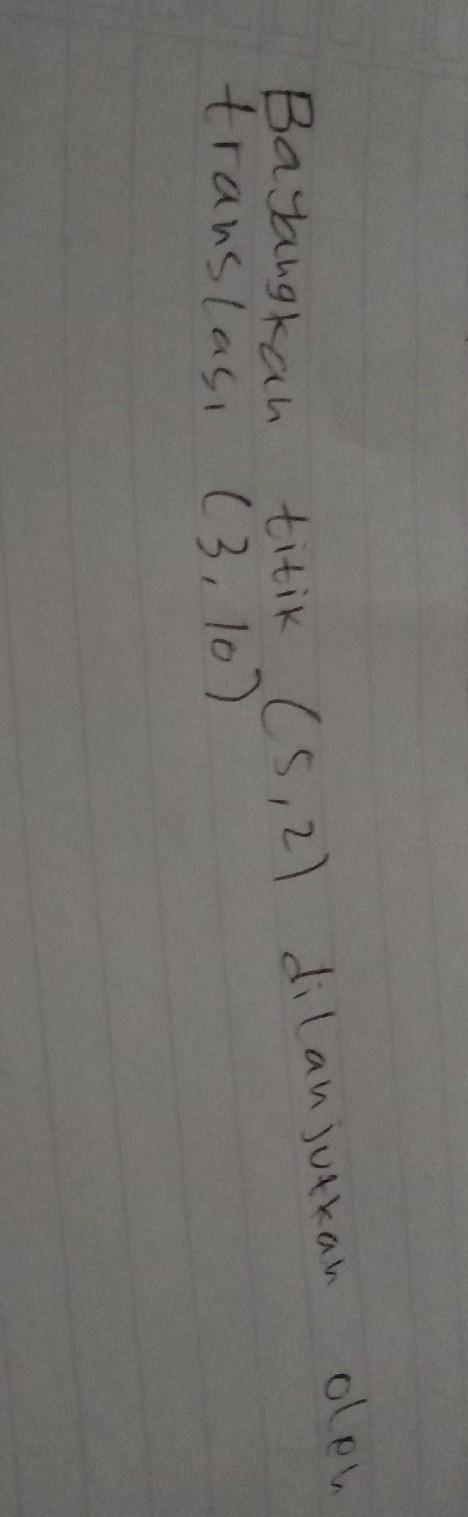 Bayangkan titik (5,2) dilanjutkan oleh
translasi (3,10)